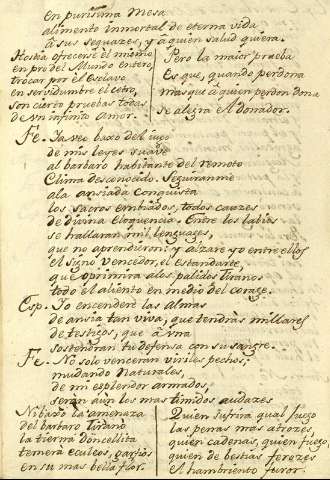 en purissima Mesa
alimento inmortal de eterna vida
à sus seguazes, y à quien salud quiera.
Hostia ofrecerse èl mismo
en pro del Mundo entero,
trocar, por el Esclavo
en servidumbre el cetro,
son cierto pruebas todas
de vn infinito amor.
Pero la maior prueba
Es que, quando perdona
mas que à quien perdon dona
se alegra el Donador.
Fe. Ya veo baxo del iugo
de mis leyes suave
al barbaro habitante del remoto
Clima desconocido. Seguiranme
ala ansiada Conquista
los sacros embiados, todos cauzes
de divina eloquencia. Entre los labios
se hallaran mil lenguages,
que no aprendieron: y alzare yo entre ellos
el signo vencedor, el estandarte,
que oprimira alos palidos tiranos
todo el aliento en medio del corage.
Esp. Yo encenderè las almas
de ansia tan viva, que tendràs millares
de testigos, que à vna
sostendran tu defensa con su sangre.
Fe. No solo venceran viriles pechos;
mudando Naturales,
de mi esplendor armados,
seràn aùn los mas timidos audazes
Ni baxo la amenaza
del barbaro tirano
la tierna doncellita
temerà eculeos, garfios
en su mas bella flor.
Quien sufrirà qual juego
las penas mas atrozes,
quien cadenas, quien fuego,
quien de bestias ferozes
el hambriento furor.